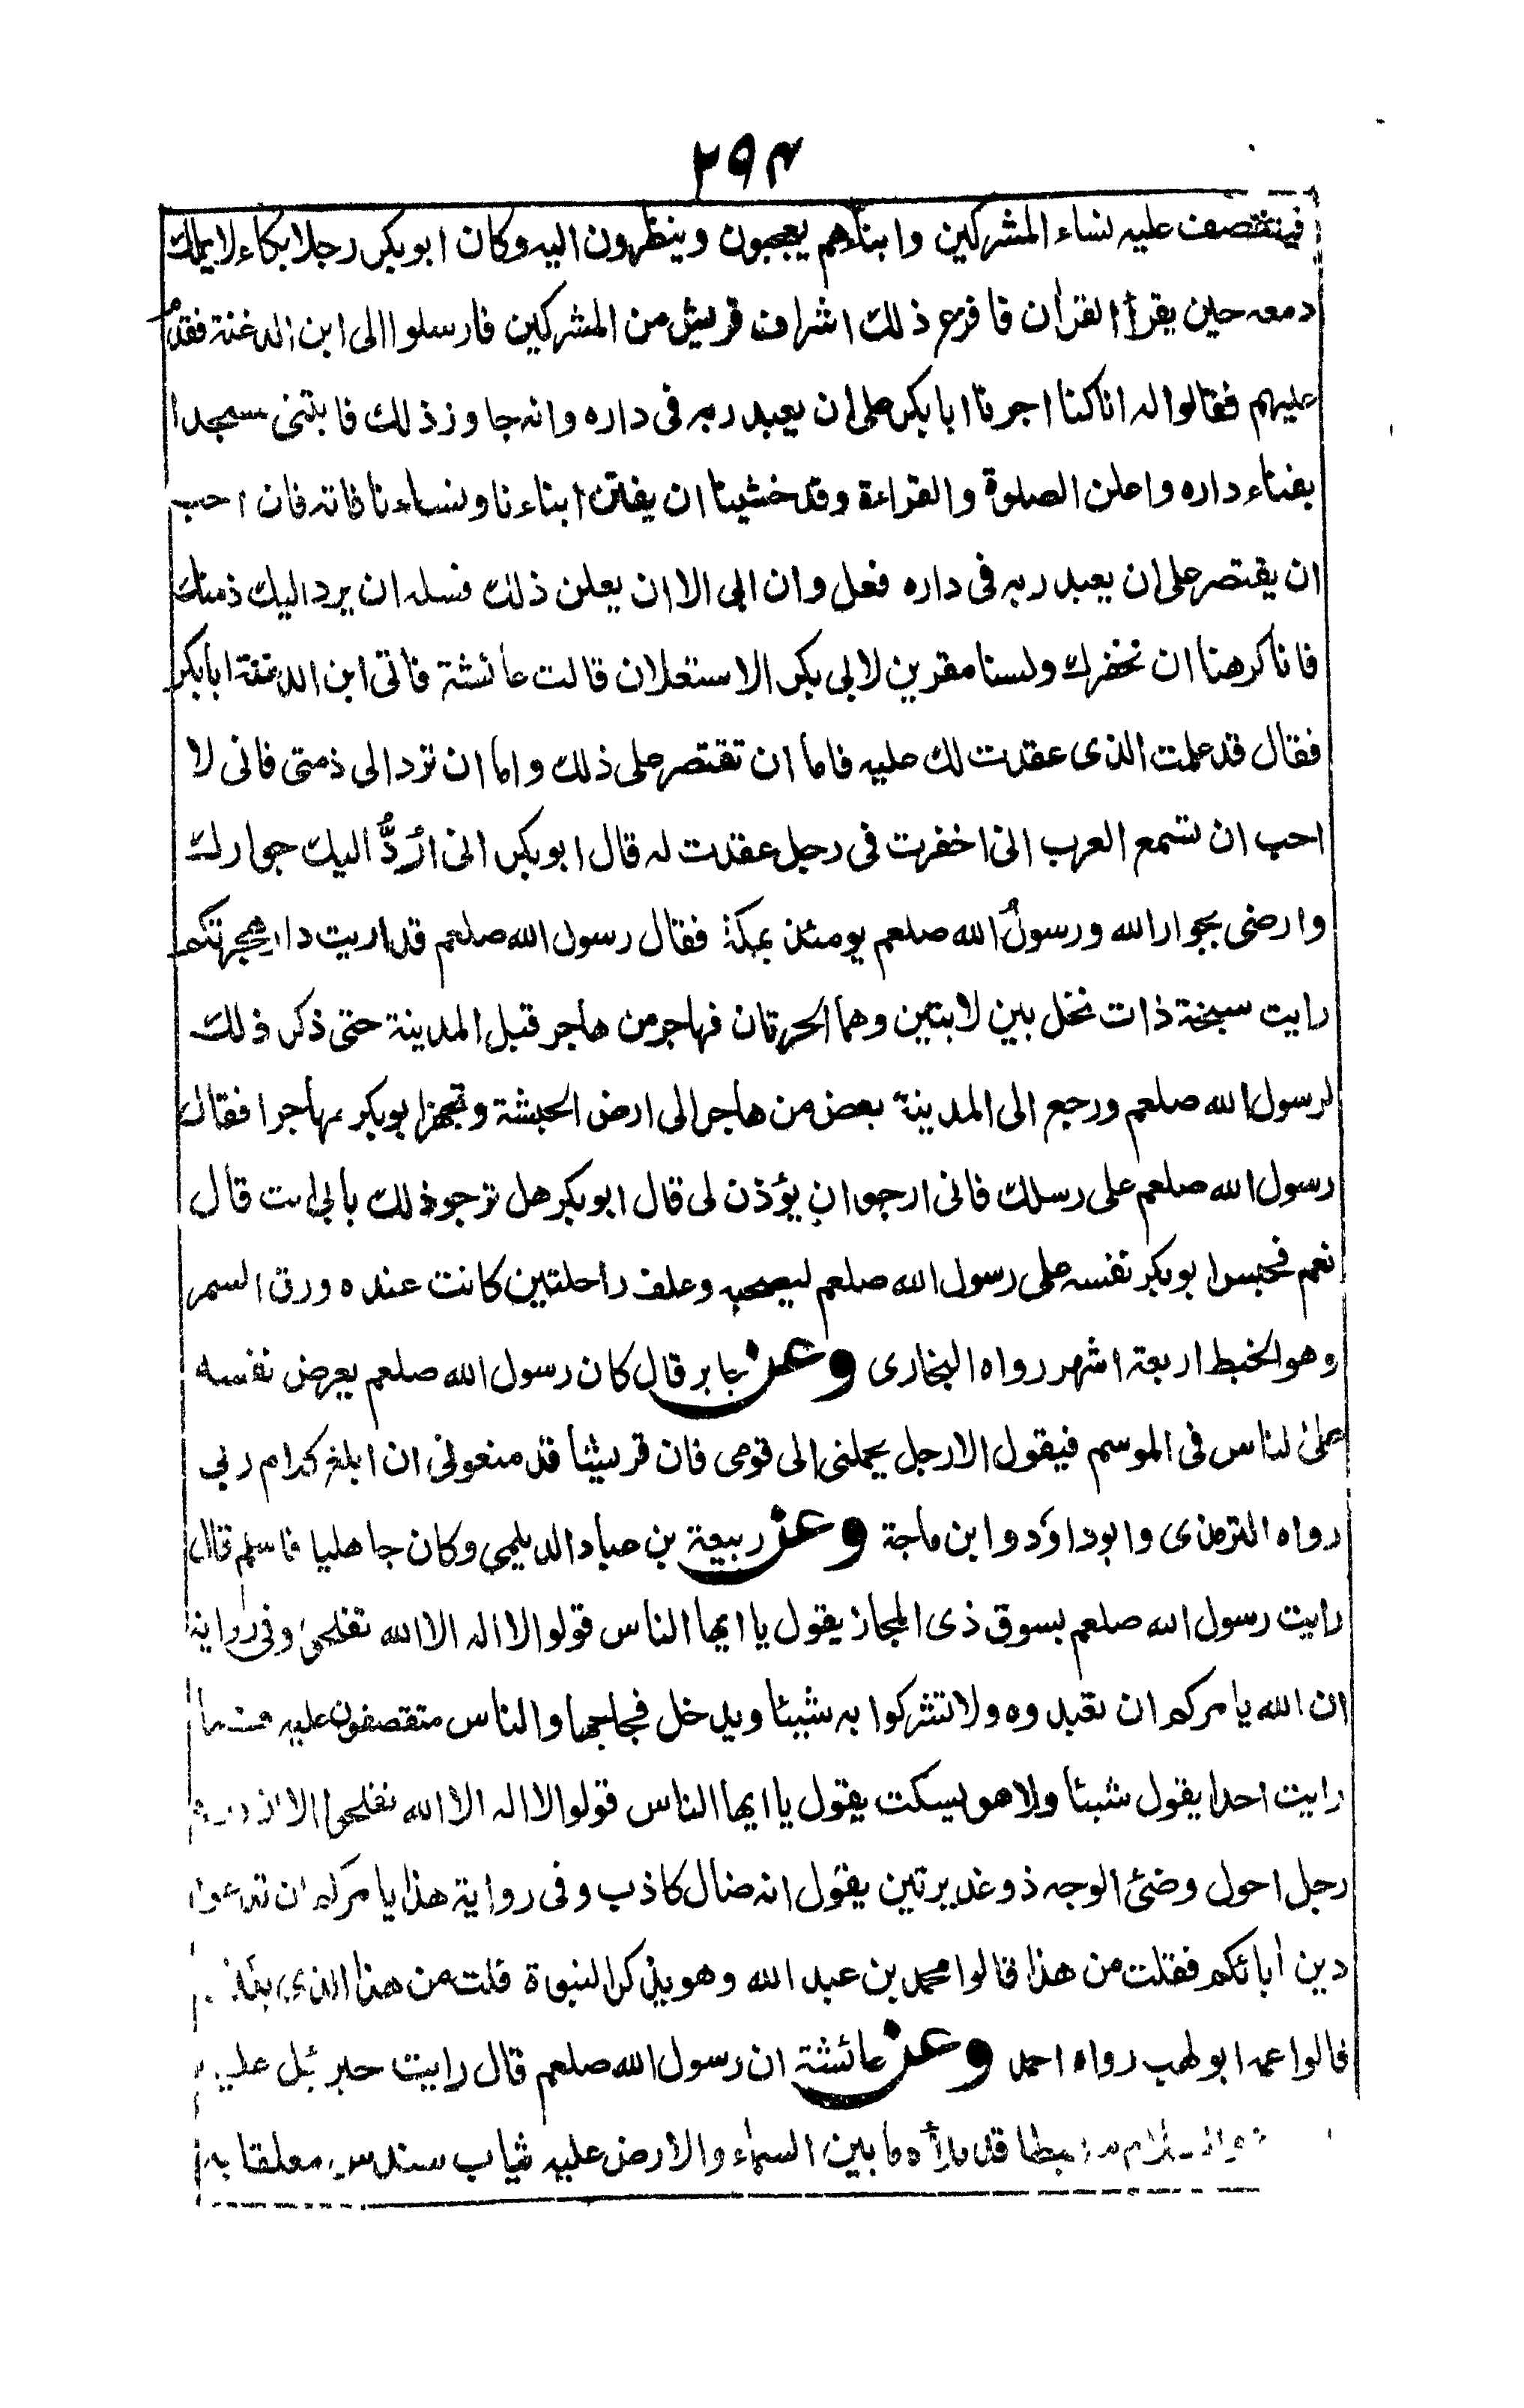 ٢٩٣
فيتقصف عليه نساء المشركين وابناؤهم يعجبون وينظرون اليه وكان ابوبكر رجلا بكاء لا يملك
دمعه حين يقرأ القرأن فافزع ذلك اشراف قريش من المشركين فارسلوا الى ابن الدغنة فقدم
عليهم فقالوا له انا كنا اجرنا ابابكر على ان يعبد ربه فى داره وانه جاوز ذلك فابتنى مسجدا
بفناء داره واعلن الصلوة والقراءة وقد خشينا ان يفتن ابناءنا ونساءنا فاته فان احب
ان يقتصر على ان يعبد ربه فى داره فعل وان ابى الا ان يعلن ذلك فسله ان يرد اليك ذمتك
فانا كرهنا ان نخفرك ولسنا مقرين لابى بكر الاستعلان قالت عائشة فاتى ابن الدغنة ابابكر
فقال قد علمت الذى عقدت لك عليه فاما ان تقتصر على ذلك واما ان ترد الى ذمتى فانى لا
احب ان تسمع العرب انى اخفرت فى رجل عقدت له قال ابوبكر انى ارُدُّ اليك جوارك
وارضى بجوار الله ورسولُ الله صلعم يومئذ بمكة فقال رسول الله صلعم قد اريت دار هجرتكم
رايت سبخة ذات نخل بين لابتين وهما الحرتان فهاجر من هاجر قبل المدينة حتى ذكر ذلك
لرسول الله صلعم ورجع الى المدينة بعض من هاجر الى ارض الحبشة وتجهز ابوبكر مهاجرا فقال
رسول الله صلعم على رسلك فانى ارجوا ان يؤذن لى قال ابوبكر هل ترجو ذلك بابى انت قال
نعم فحبس ابوبكر نفسه على رسول الله صلعم ليصحبه وعلف راحلتين كانت عنده ورق السمر
وهو الخبط اربعة اشهر رواه البخارى وعن جابر قال كان رسول الله صلعم يعرض نفسه
على الناس فى الموسم فيقول الا رجل يحملنى الى قومى فان قريشا قد منعونى ان ابلغ كلام ربى
رواه الترمذى وابوداؤد وابن ماجة وعن ربيعة بن عباد الديلمى وكان جاهليا فاسلم قال
رايت رسول الله صلعم بسوق ذى المجاز يقول يا ايها الناس قولوا لا اله الا الله تفلحوا وفى رواية
ان الله يامركم ان تعبدوه ولا تشركوا به شيئا ويدخل فجاجها والناس متقصفون عليه فما
رايت احدا يقول شيئا ولا هو يسكت يقول يا ايها الناس قولوا لا اله الا الله تفلحوا الا ان
رجل احول وضئ الوجه ذو غديرتين يقول انه ضال كاذب وفى رواية هذا يامركم ان تدعوا
دين أبائكم فقلت من هذا قالوا محمد بن عبد الله وهو يذكر النبوة قلت من هذا الذى
قالوا عمه ابو لهب رواه احمد وعن عائشة ان رسول الله صلعم قال رايت جبرئيل عليه
منهبطا قد ملأه ما بين السماء والارض عليه ثياب سندس معلقا به